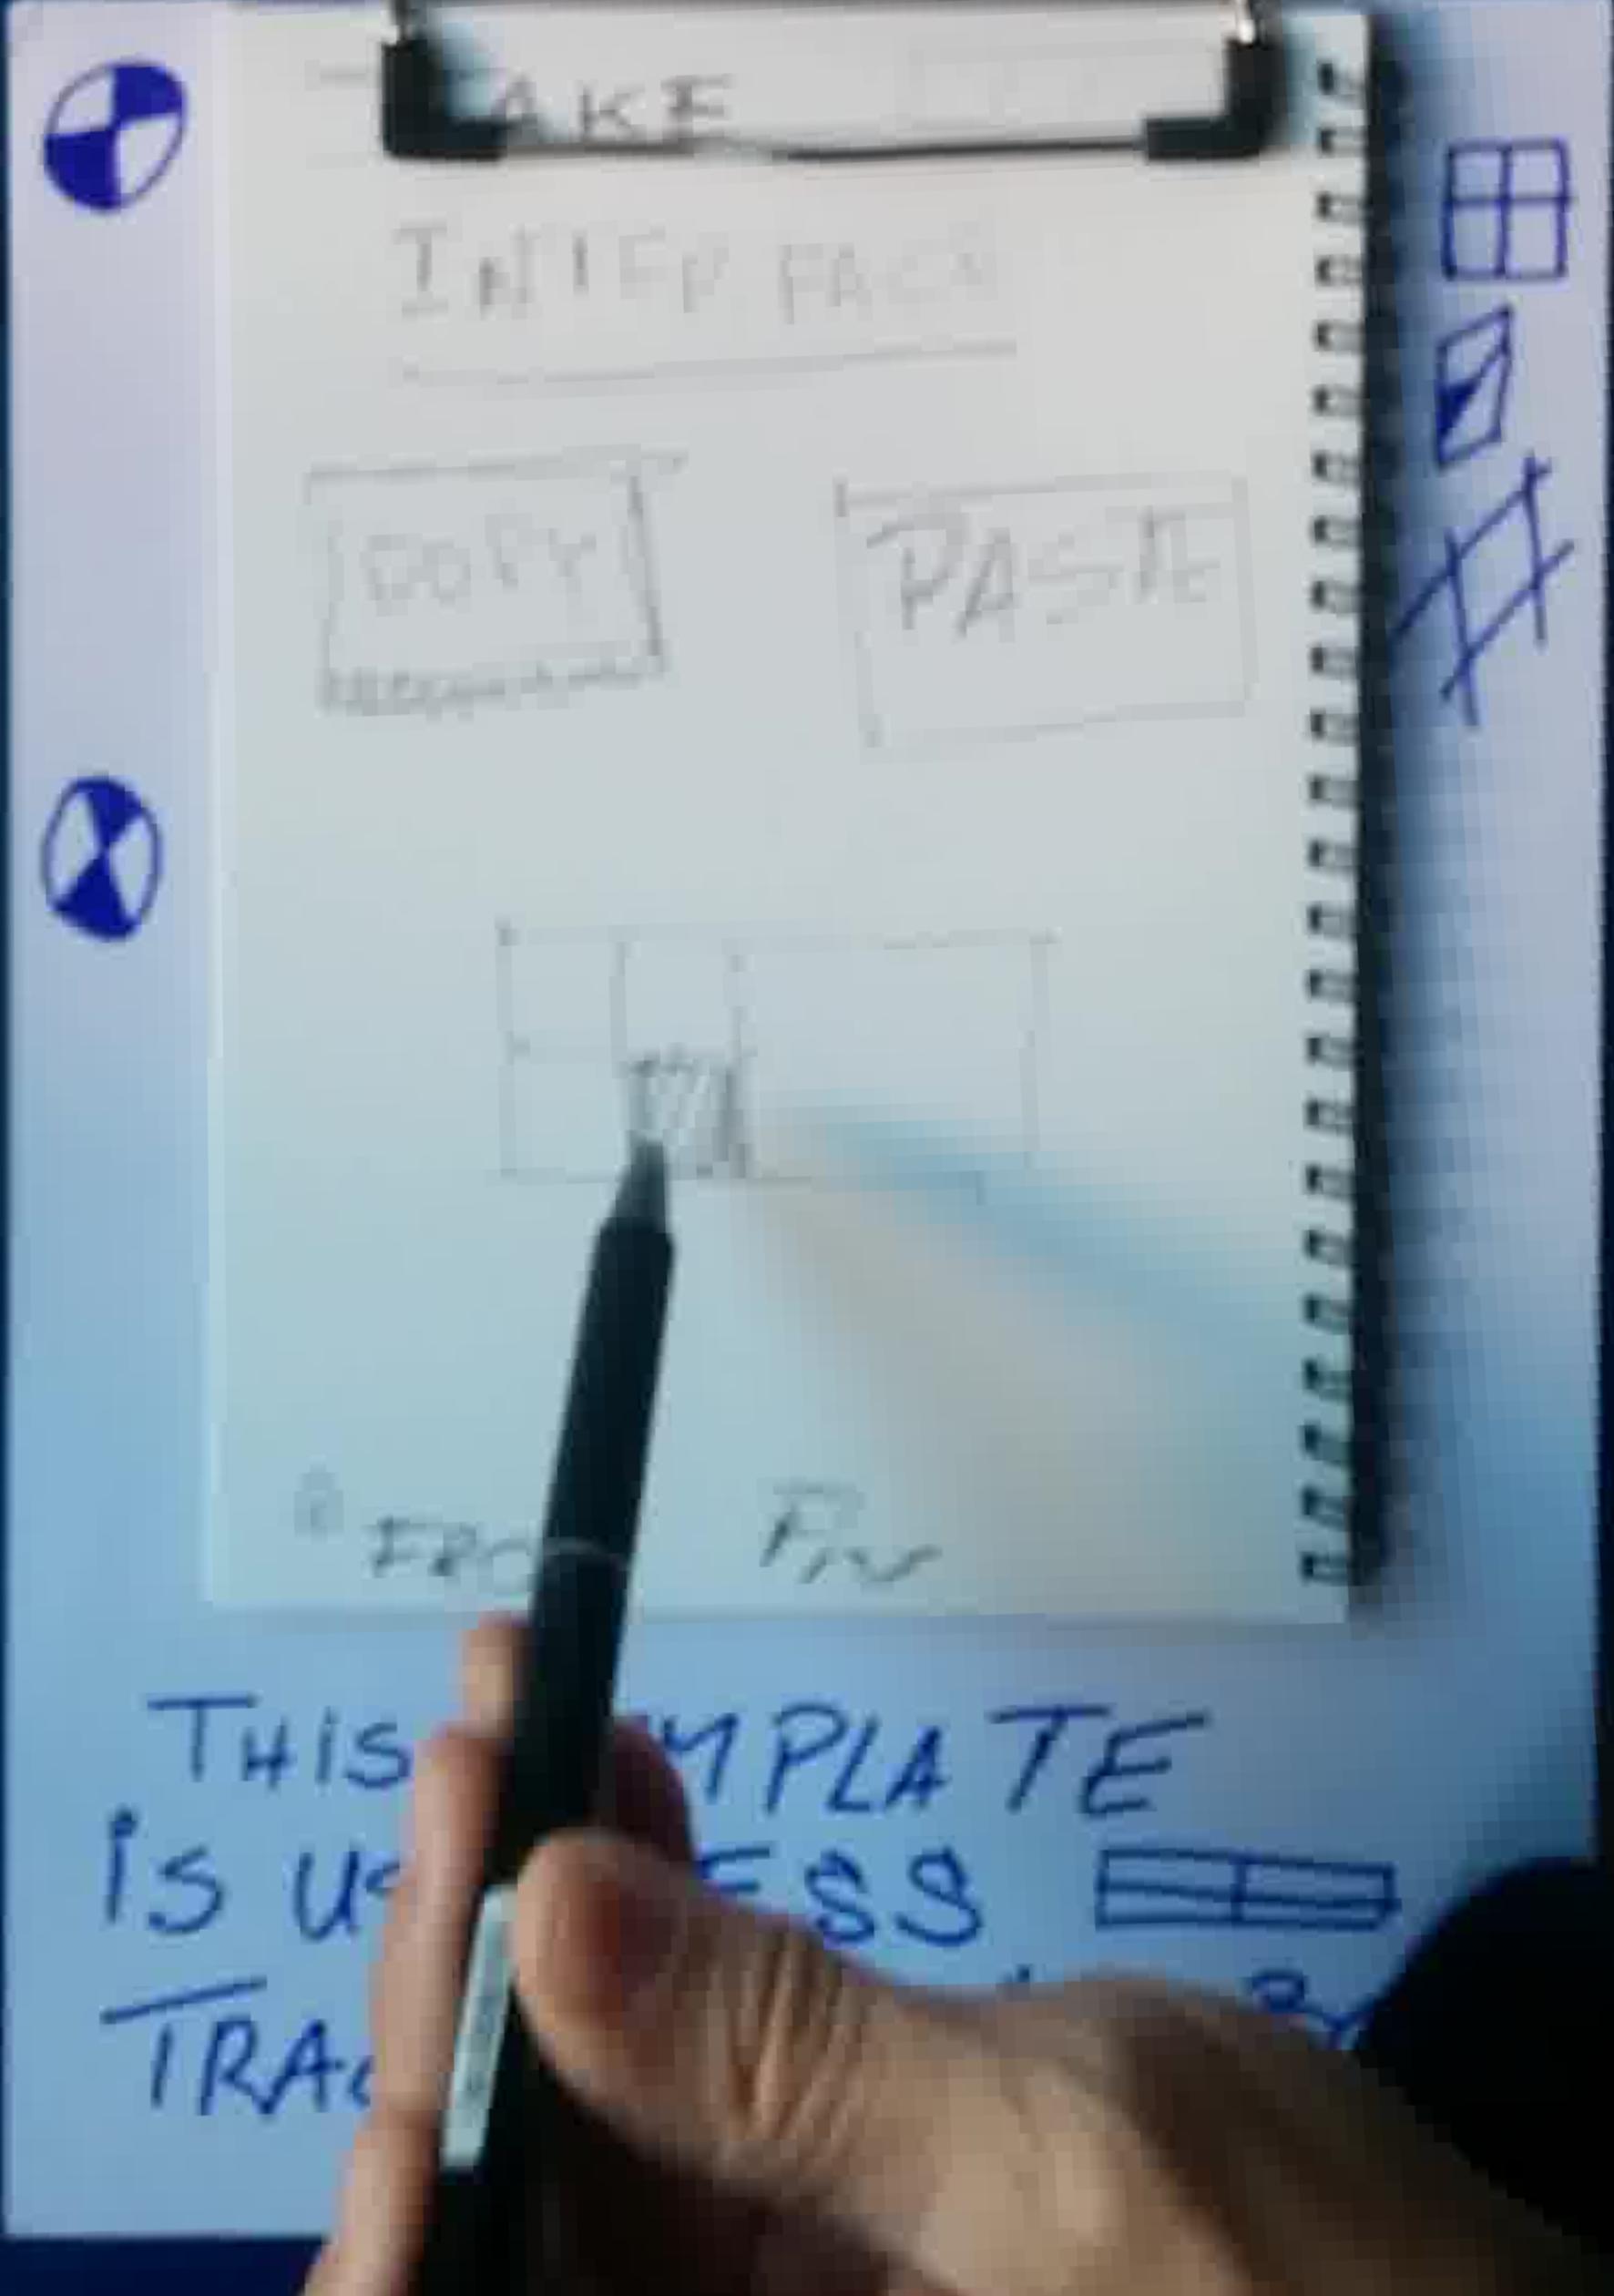 AKE
INTERFACE
COPY PASTE
FRO Fin
THIS MPLATE
is US ESS
TRAC